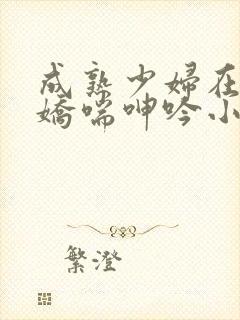 成熟少婦在
嬌喘呻吟小
繁澄